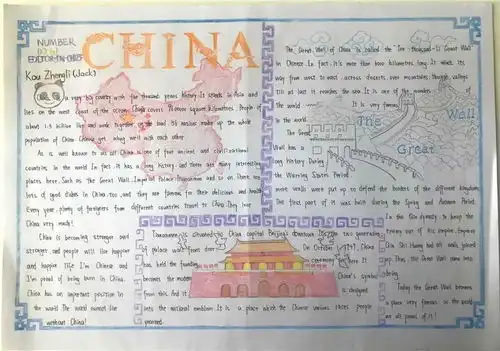 NUMBER
EDITOR-IN-CHIEF
Kou Zhengli (Jack)
CHINA
a very big country with five thousand years history. It stands in Asia and
lies on the west coast of the ocean. China covers square kilometres. People of
about 1.3 billion live and work together on the land. 56 nations make up the whole
population of China. Chinese get along well with each other.
As is well known to us all China is one of four ancient and civilizational
countries in the world. In fact, it has a history and there are many interesting
places here. Such as the Great Wall, Imperial Palace Museum and so on. There are
lots of good dishes in China, too, and they are famous for their delicious and health.
Every year, plenty of foreigners from different countries travel to China. They love
China very much!
China is becoming stronger and
stronger, and people will live happier
and happier life. I'm Chinese and
I'm proud of being born in China.
China has an important position in
the world. The world cannot live
without China!
The Great Wall of China is called the "Ten-thousand-Li Great Wall"
in Chinese. In fact, it's more than 6000 kilometres long. It winds its
way from west to east, across deserts, over mountains, through valleys
till at last it reaches the sea. It is one of the wonders of
the world. It is very famous
in the world.
The Great
Wall has a
long history. During
the Warring States Period
more walls were put up to defend the borders of the different kingdoms.
The first part of it was built during the Spring and Autumn Period.
In the Qin dynasty, to keep the
enemy out of his empire, Emperor
Qin Shi Huang had all walls joined
up. Thus, the Great Wall came into
being.
Today the Great Wall becomes
a place very famous in the world
we all proud of it!
The
Great
Wall
Tiananmen is situated in China capital Beijing's downtown.
of palace wall front door. On October 1, 1949, China
has held the founding ceremony here. It
becomes the modern China's symbol
from this. And it is designed
into the national emblem. It is a place which the Chinese various races people